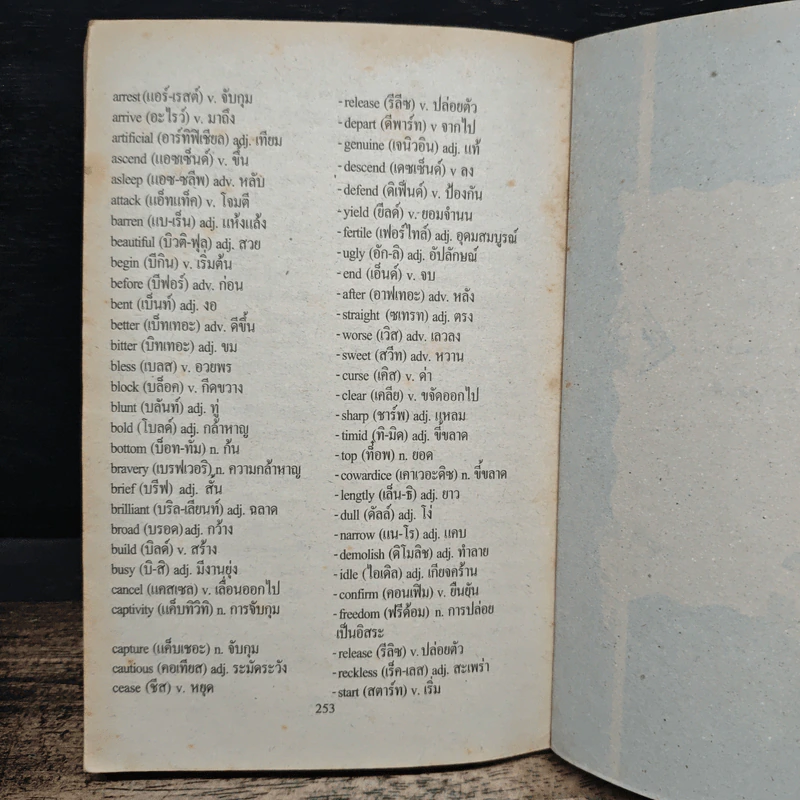 arrest (แอร์-เรสต์) v. จับกุม
arrive (อะไรว์) v. มาถึง
artificial (อาร์ทิฟิเชียล) adj. เทียม
ascend (แอซเซ็นด์) v. ขึ้น
asleep (แอซ-ซลีพ) adv. หลับ
attack (แอ็ทแท็ค) v. โจมตี
barren (แบ-เร็น) adj. แห้งแล้ง
beautiful (บิวติ-ฟุล) adj. สวย
begin (บีกิน) v. เริ่มต้น
before (บีฟอร์) adv. ก่อน
bent (เบ็นท์) adj. งอ
better (เบ็ทเทอะ) adv. ดีขึ้น
bitter (บิทเทอะ) adj. ขม
bless (เบลส) v. อวยพร
block (บล็อค) v. กีดขวาง
blunt (บลันท์) adj. ทู่
bold (โบลด์) adj. กล้าหาญ
bottom (บ็อท-ทั่ม) n. ก้น
bravery (เบรฟเวอริ) n. ความกล้าหาญ
brief (บรีฟ) adj. สั้น
brilliant (บริล-เลียนท์) adj. ฉลาด
broad (บรอด) adj. กว้าง
build (บิลด์) v. สร้าง
busy (บิ-สิ) adj. มีงานยุ่ง
cancel (แคสเซล) v. เลื่อนออกไป
captivity (แค็บทิวิทิ) n. การจับกุม
capture (แค็บเชอะ) n. จับกุม
cautious (คอเทียส) adj. ระมัดระวัง
cease (ซีส) v. หยุด
-release (รีลีซ) v. ปล่อยตัว
-depart (ดีพาร์ท) v จากไป
-genuine (เจนิวอิน) adj. แท้
-descend (เดซเซ็นด์) v ลง
-defend (ดิเฟ็นด์) v. ป้องกัน
-yield (ยีลด์) v. ยอมจำนน
-fertile (เฟอร์ไทล์) adj. อุดมสมบูรณ์
-ugly (อัก-ลิ) adj. อัปลักษณ์
-end (เอ็นด์) v. จบ
-after (อาฟเทอะ) adv. หลัง
-straight (ซเทรท) adj. ตรง
-worse (เวิส) adv. เลวลง
-sweet (สวีท) adv. หวาน
-curse (เคิส) v. ด่า
-clear (เคลีย) v. ขจัดออกไป
-sharp (ชาร์พ) adj. แหลม
-timid (ทิ-มิด) adj. ขี้ขลาด
-top (ท็อพ) n. ยอด
-cowardice (เคาเวอะดิซ) n. ขี้ขลาด
-lengtly (เล็น-ธิ) adj. ยาว
-dull (ดัลล์) adj. โง่
-narrow (แน-โร) adj. แคบ
-demolish (ดิโมลิช) adj. ทำลาย
-idle (ไอเดิล) adj. เกียจคร้าน
-confirm (คอนเฟิม) v. ยืนยัน
-freedom (ฟรีด้อม) n. การปล่อย
เป็นอิสระ
-release (รีลิซ) v.ปล่อยตัว
-reckless (เร็ค-เลส) adj. สะเพร่า
-start (สตาร์ท) v. เริ่ม
253